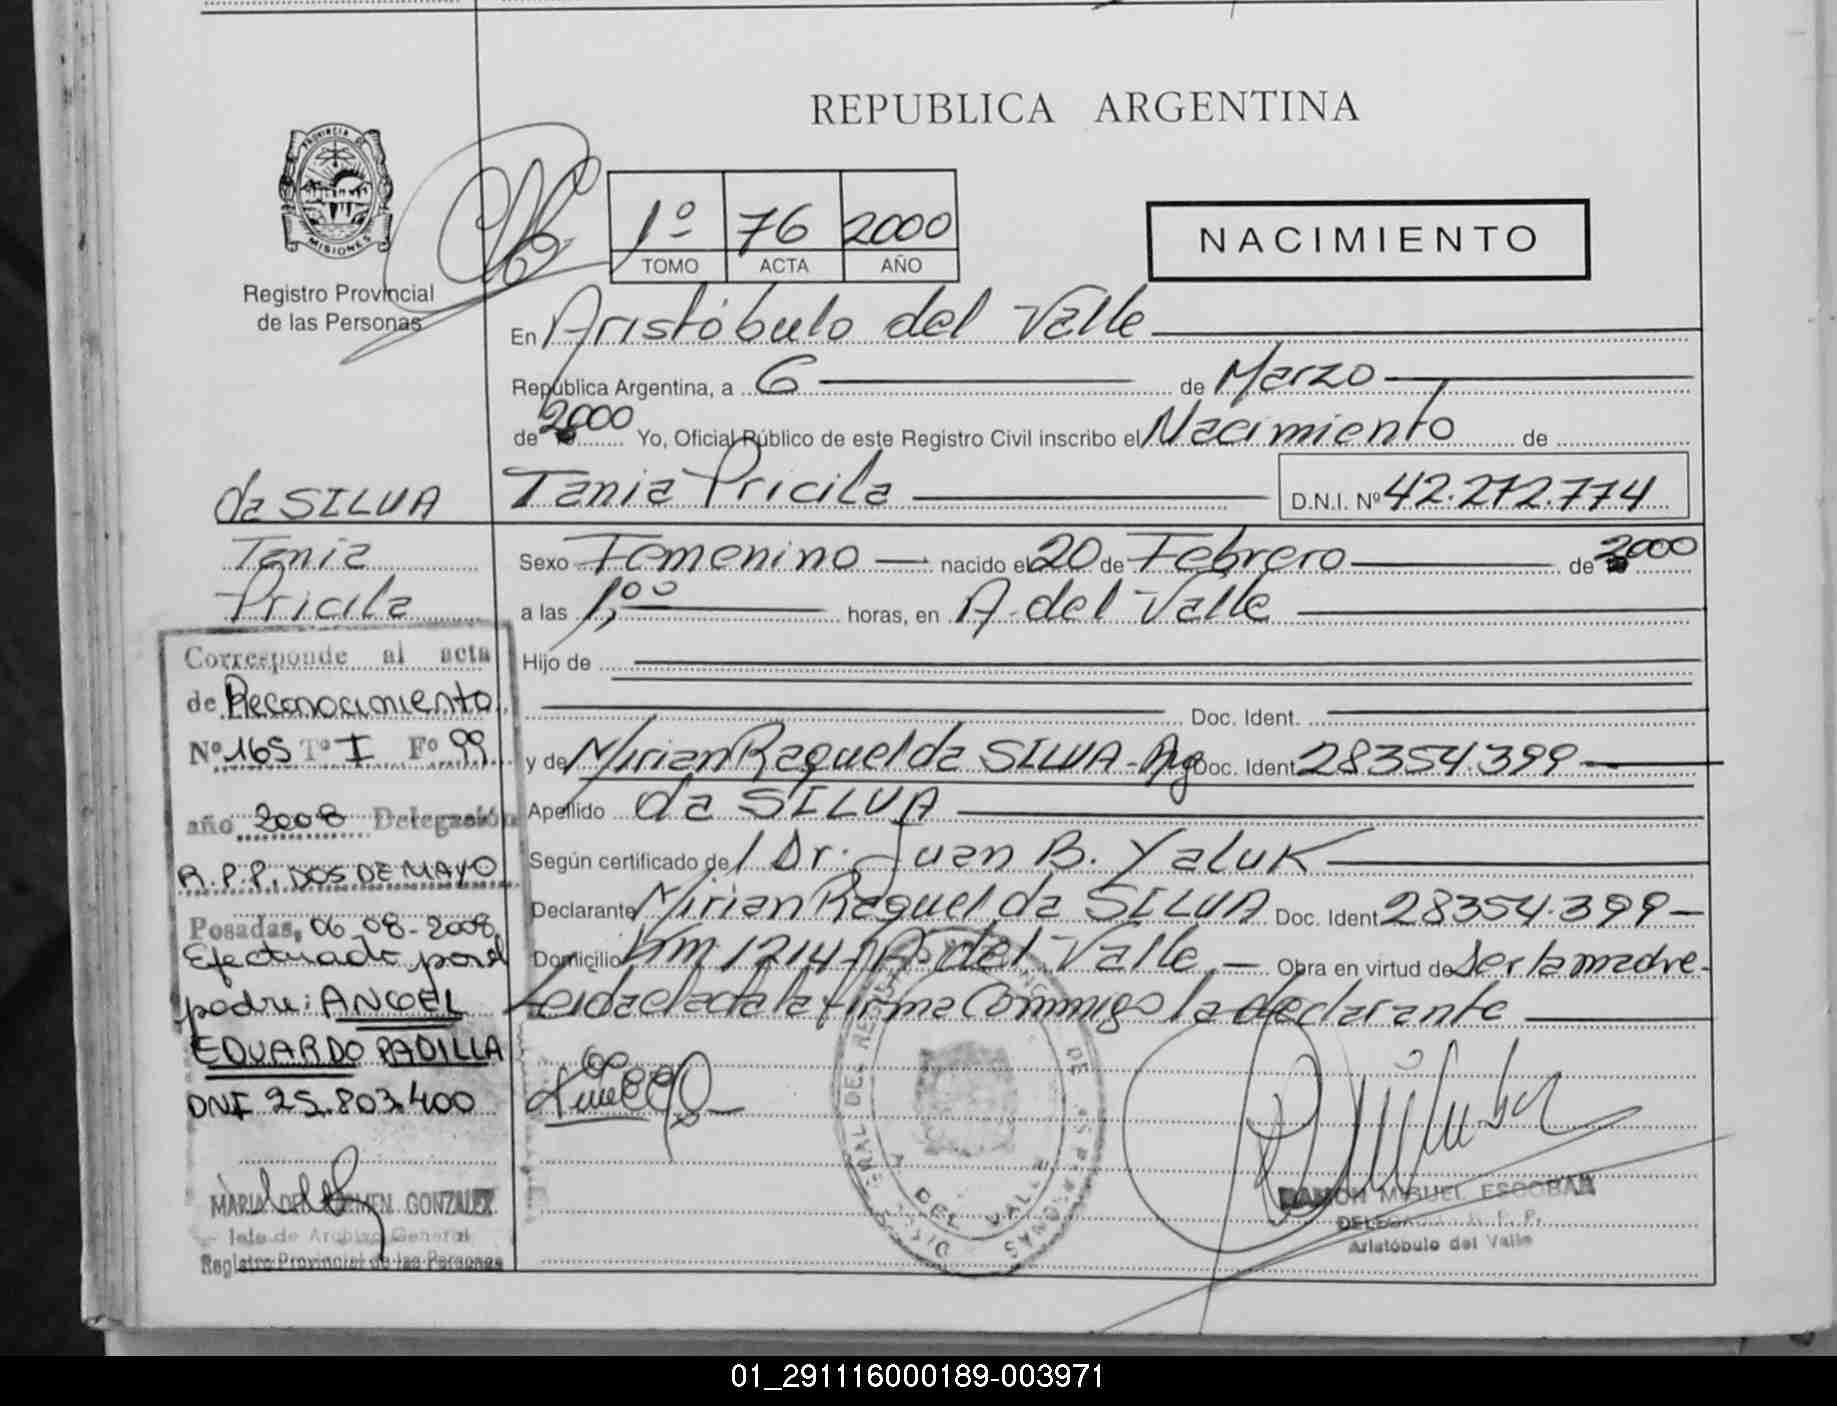 REPUBLICA ARGENTINA
PROVINCIA DE MISIONES
Registro Provincial
de las Personas
1º 76 2000
TOMO ACTA AÑO
NACIMIENTO
En Aristóbulo del Valle
República Argentina, a 6 de Marzo
de 2000 Yo, Oficial Público de este Registro Civil inscribo el Nacimiento de
Tania Pricila D.N.I. Nº 42.272.774
da SILVA
Tania
Pricila
Sexo Femenino nacido el 20 de Febrero de 2000
a las 1,00 horas, en A. del Valle
Hijo de
Doc. Ident.
y de Mirian Raquel da SILVA - Arg Doc. Ident. 28354.399
Apellido da SILVA
Según certificado de l Dr. Juan B. Yaluk
Declarante Mirian Raquel da SILVA Doc. Ident. 28354.399
Domicilio Km. 1214 - A. del Valle Obra en virtud de Ser la madre.
Leida el acta la firma Commigo la declarante
Corresponde al acta
de Reconocimiento
Nº 165 Tº I Fº 99
año 2008 Delegación
R.P.P. DOS DE MAYO
Posadas, 06-08-2008
Efectuado por el
padre: ANGEL
EDUARDO PADILLA
DNI 25.803.400
MARIA DEL CARMEN GONZALEZ
Jefe de Archivo General
Registro Provincial de las Personas
DEL VALLE
RAMON MIGUEL ESCOBAR
DELEGADO R. P. P.
Aristóbulo del Valle
01_291116000189-003971